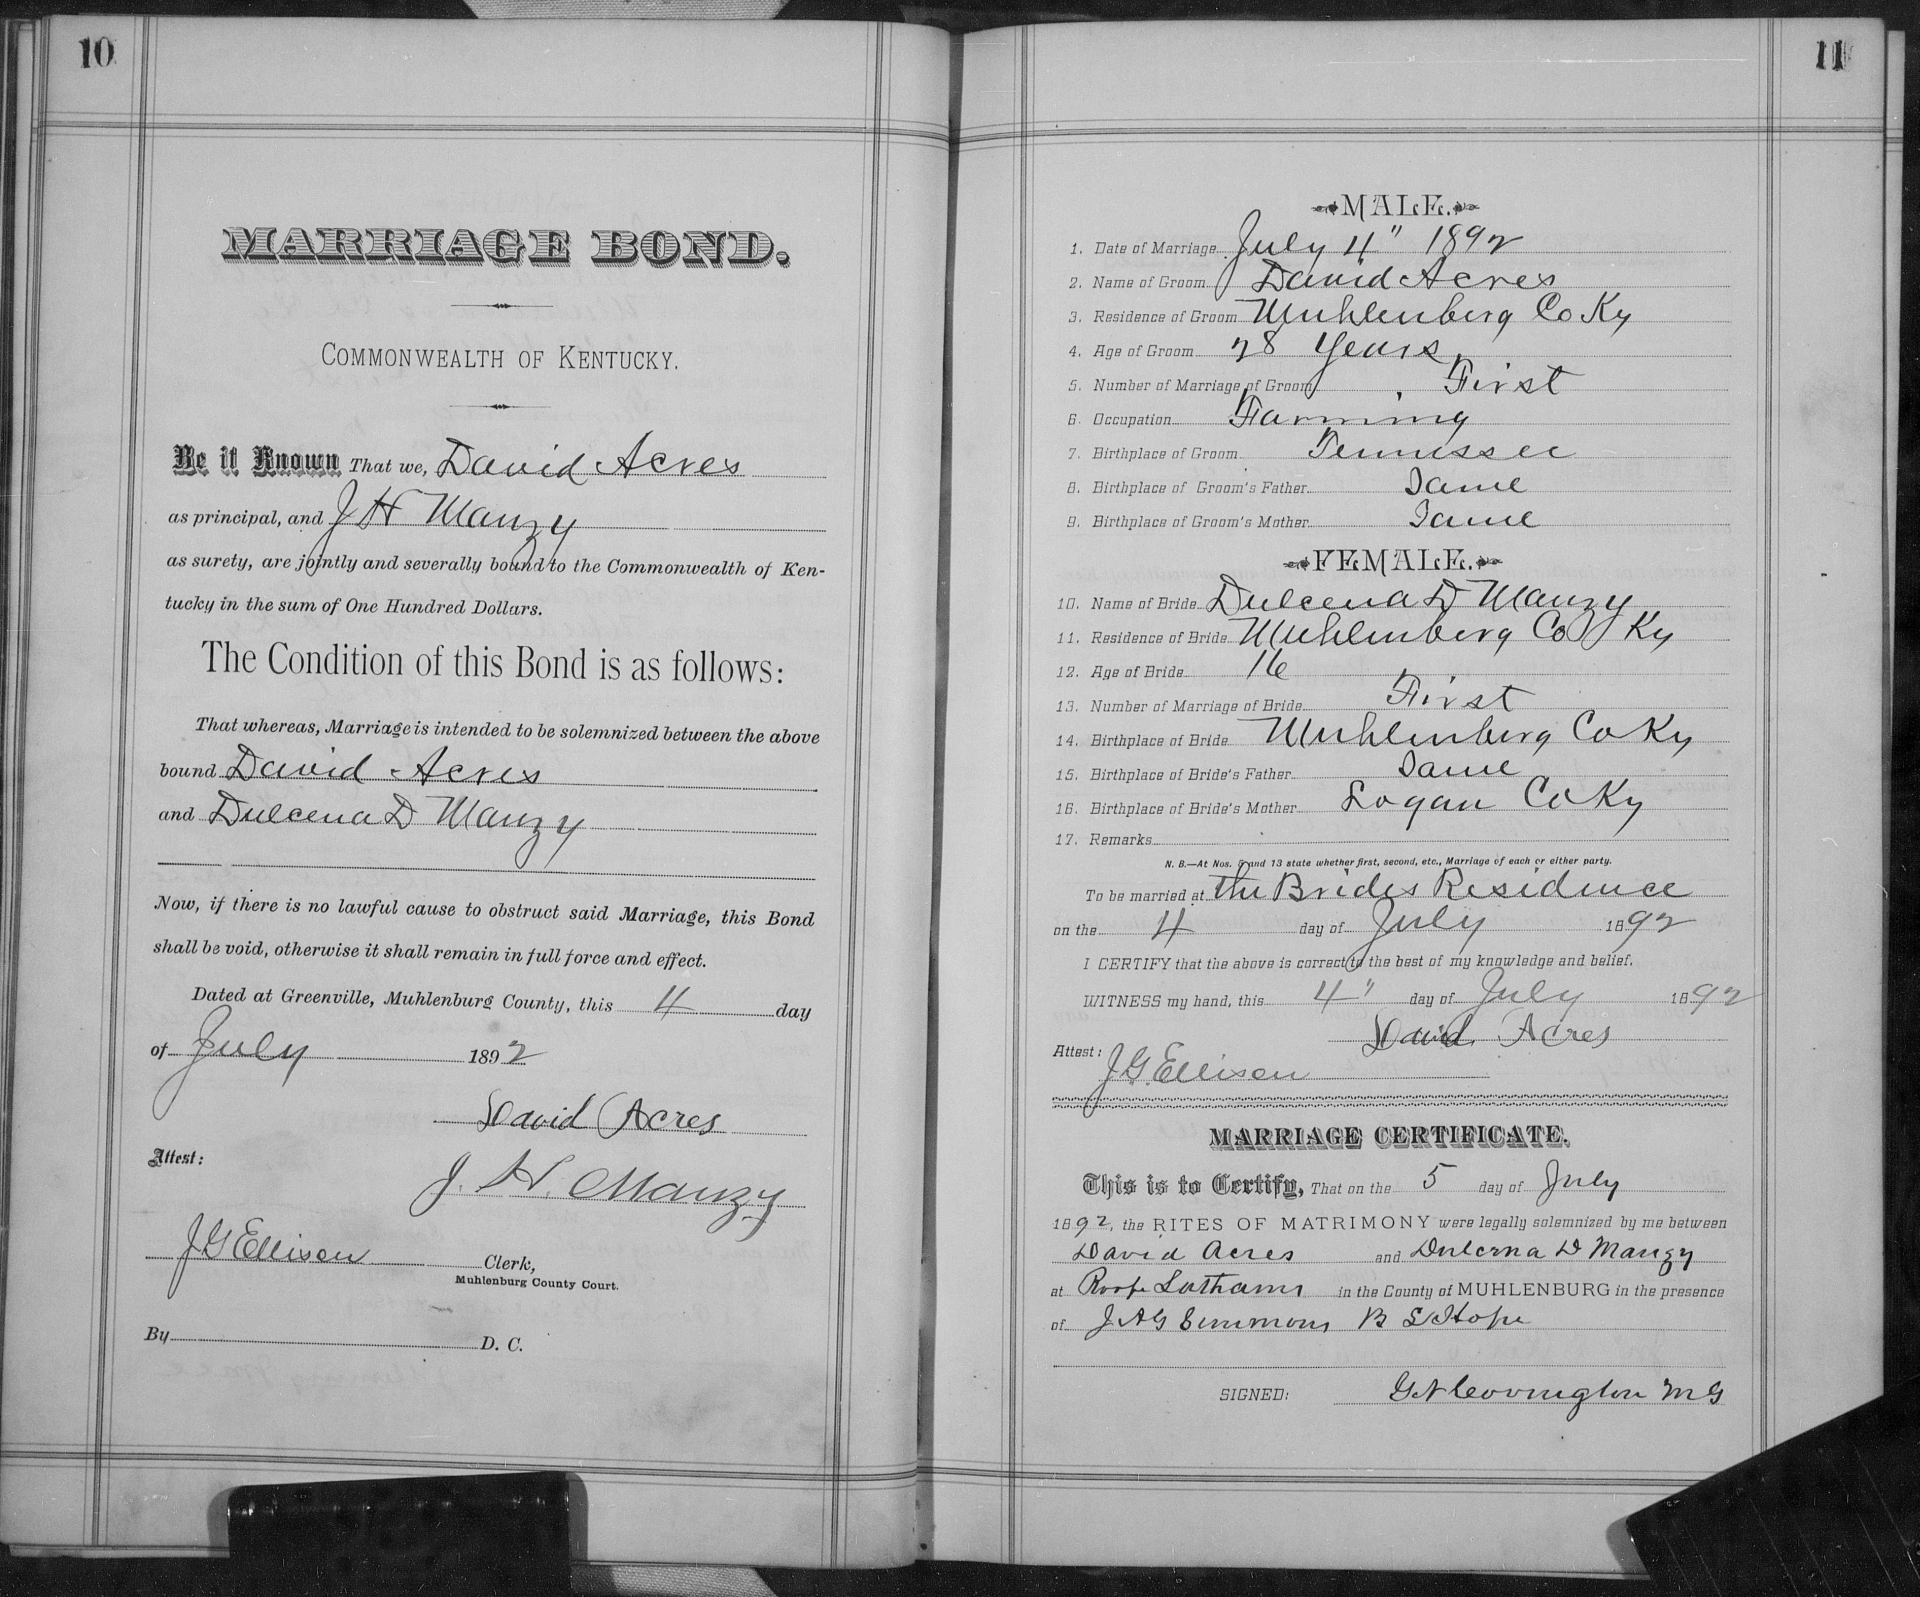 10
MARRIAGE BOND.
COMMONWEALTH OF KENTUCKY.
Be it Known That we, David Acres
as principal, and J H Manzy
as surety, are jointly and severally bound to the Commonwealth of Ken-
tucky in the sum of One Hundred Dollars.
The Condition of this Bond is as follows:
That whereas, Marriage is intended to be solemnized between the above
bound David Acres
and Dulcena D Manzy
Now, if there is no lawful cause to obstruct said Marriage, this Bond
shall be void, otherwise it shall remain in full force and effect.
Dated at Greenville, Muhlenburg County, this 4 day
of July 1892
David Acres
Attest:
J. H. Manzy
J G Ellison Clerk,
Muhlenburg County Court.
By D. C.
11
MALE.
1. Date of Marriage July 4" 1892
2. Name of Groom David Acres
3. Residence of Groom Muhlenberg Co Ky
4. Age of Groom 28 Years
5. Number of Marriage of Groom First
6. Occupation Farming
7. Birthplace of Groom Tennessee
8. Birthplace of Groom's Father Same
9. Birthplace of Groom's Mother Same
FEMALE.
10. Name of Bride Dulcena D Manzy
11. Residence of Bride Muhlenberg Co Ky
12. Age of Bride 16
13. Number of Marriage of Bride First
14. Birthplace of Bride Muhlenberg Co Ky
15. Birthplace of Bride's Father Same
16. Birthplace of Bride's Mother Logan Co Ky
17. Remarks
N. B.—At Nos. 5 and 13 state whether first, second, etc., Marriage of each or either party.
To be married at the Brides Residence
on the 4 day of July 1892
I CERTIFY that the above is correct to the best of my knowledge and belief.
WITNESS my hand, this 4" day of July 1892
David Acres
Attest: J. G. Ellison
MARRIAGE CERTIFICATE.
This is to Certify, That on the 5 day of July
1892, the RITES OF MATRIMONY were legally solemnized by me between
David Acres and Dulcena D Manzy
at Lathams in the County of MUHLENBURG in the presence
of J A G Simmons B L Hope
SIGNED: G N Covington M G